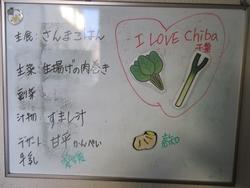 主食: さんまごはん
主菜: 生揚げの肉巻き
副菜:
汁物 すまし汁
デザート 甘平 かんぺい
牛乳 愛媛
I LOVE Chiba
千葉